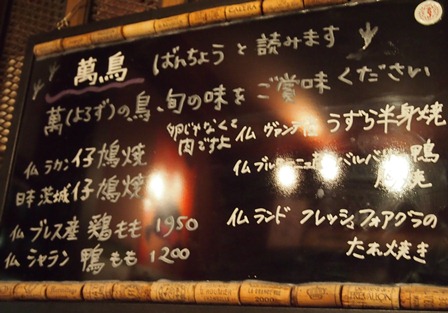 萬鳥 ばんちょう と 読みます
萬(よろず)の鳥、旬の味をご賞味ください
卵じゃなくて
肉ですよ
仏 ラカン 仔鳩焼
日本 茨城 仔鳩焼
仏 ブレス産 鶏もも 1950
仏 シャラン 鴨もも 1200
仏 ヴァンデ産 うずら半身焼
仏 ブルターニュ産 バルバリー鴨
仏 ランド フレッシュフォアグラの
たれ焼き